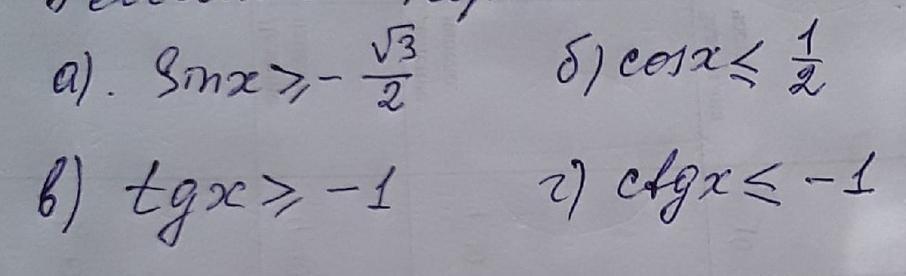 а). Sinx ≥ - √3/2 б) cosx ≤ 1/2
в) tgx ≥ -1 г) ctgx ≤ -1